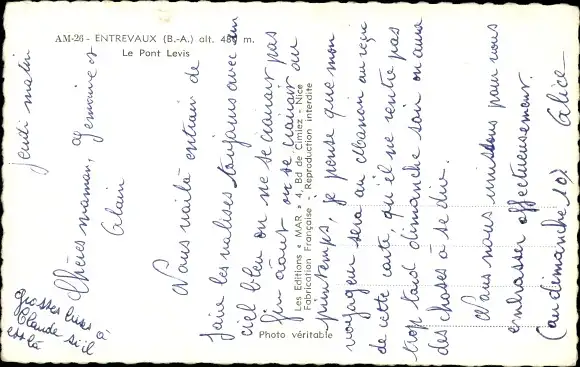 AM-26 - ENTREVAUX (B.-A.) alt. 480 m.
Le Pont Levis
Les Editions "MAR" 4, Bd de Cimiez - Nice
Fabrication Française - Reproduction interdite
Photo véritable
Jeudi matin
Chères maman, Germaine et
Alain
Nous voilà entrain de
faire les valises toujours avec un
ciel bleu on ne se croirait pas
fin août on se croirait au
printemps, je pense que mon
voyageur sera au cabanon au reçu
de cette carte, qu'il ne rentre pas
trop tard dimanche soir on aura
des choses à se dire.
Nous nous unissons pour vous
embrasser affectueusement.
(au dimanche 10) Alice
grosses bises à
Claude si il
est là